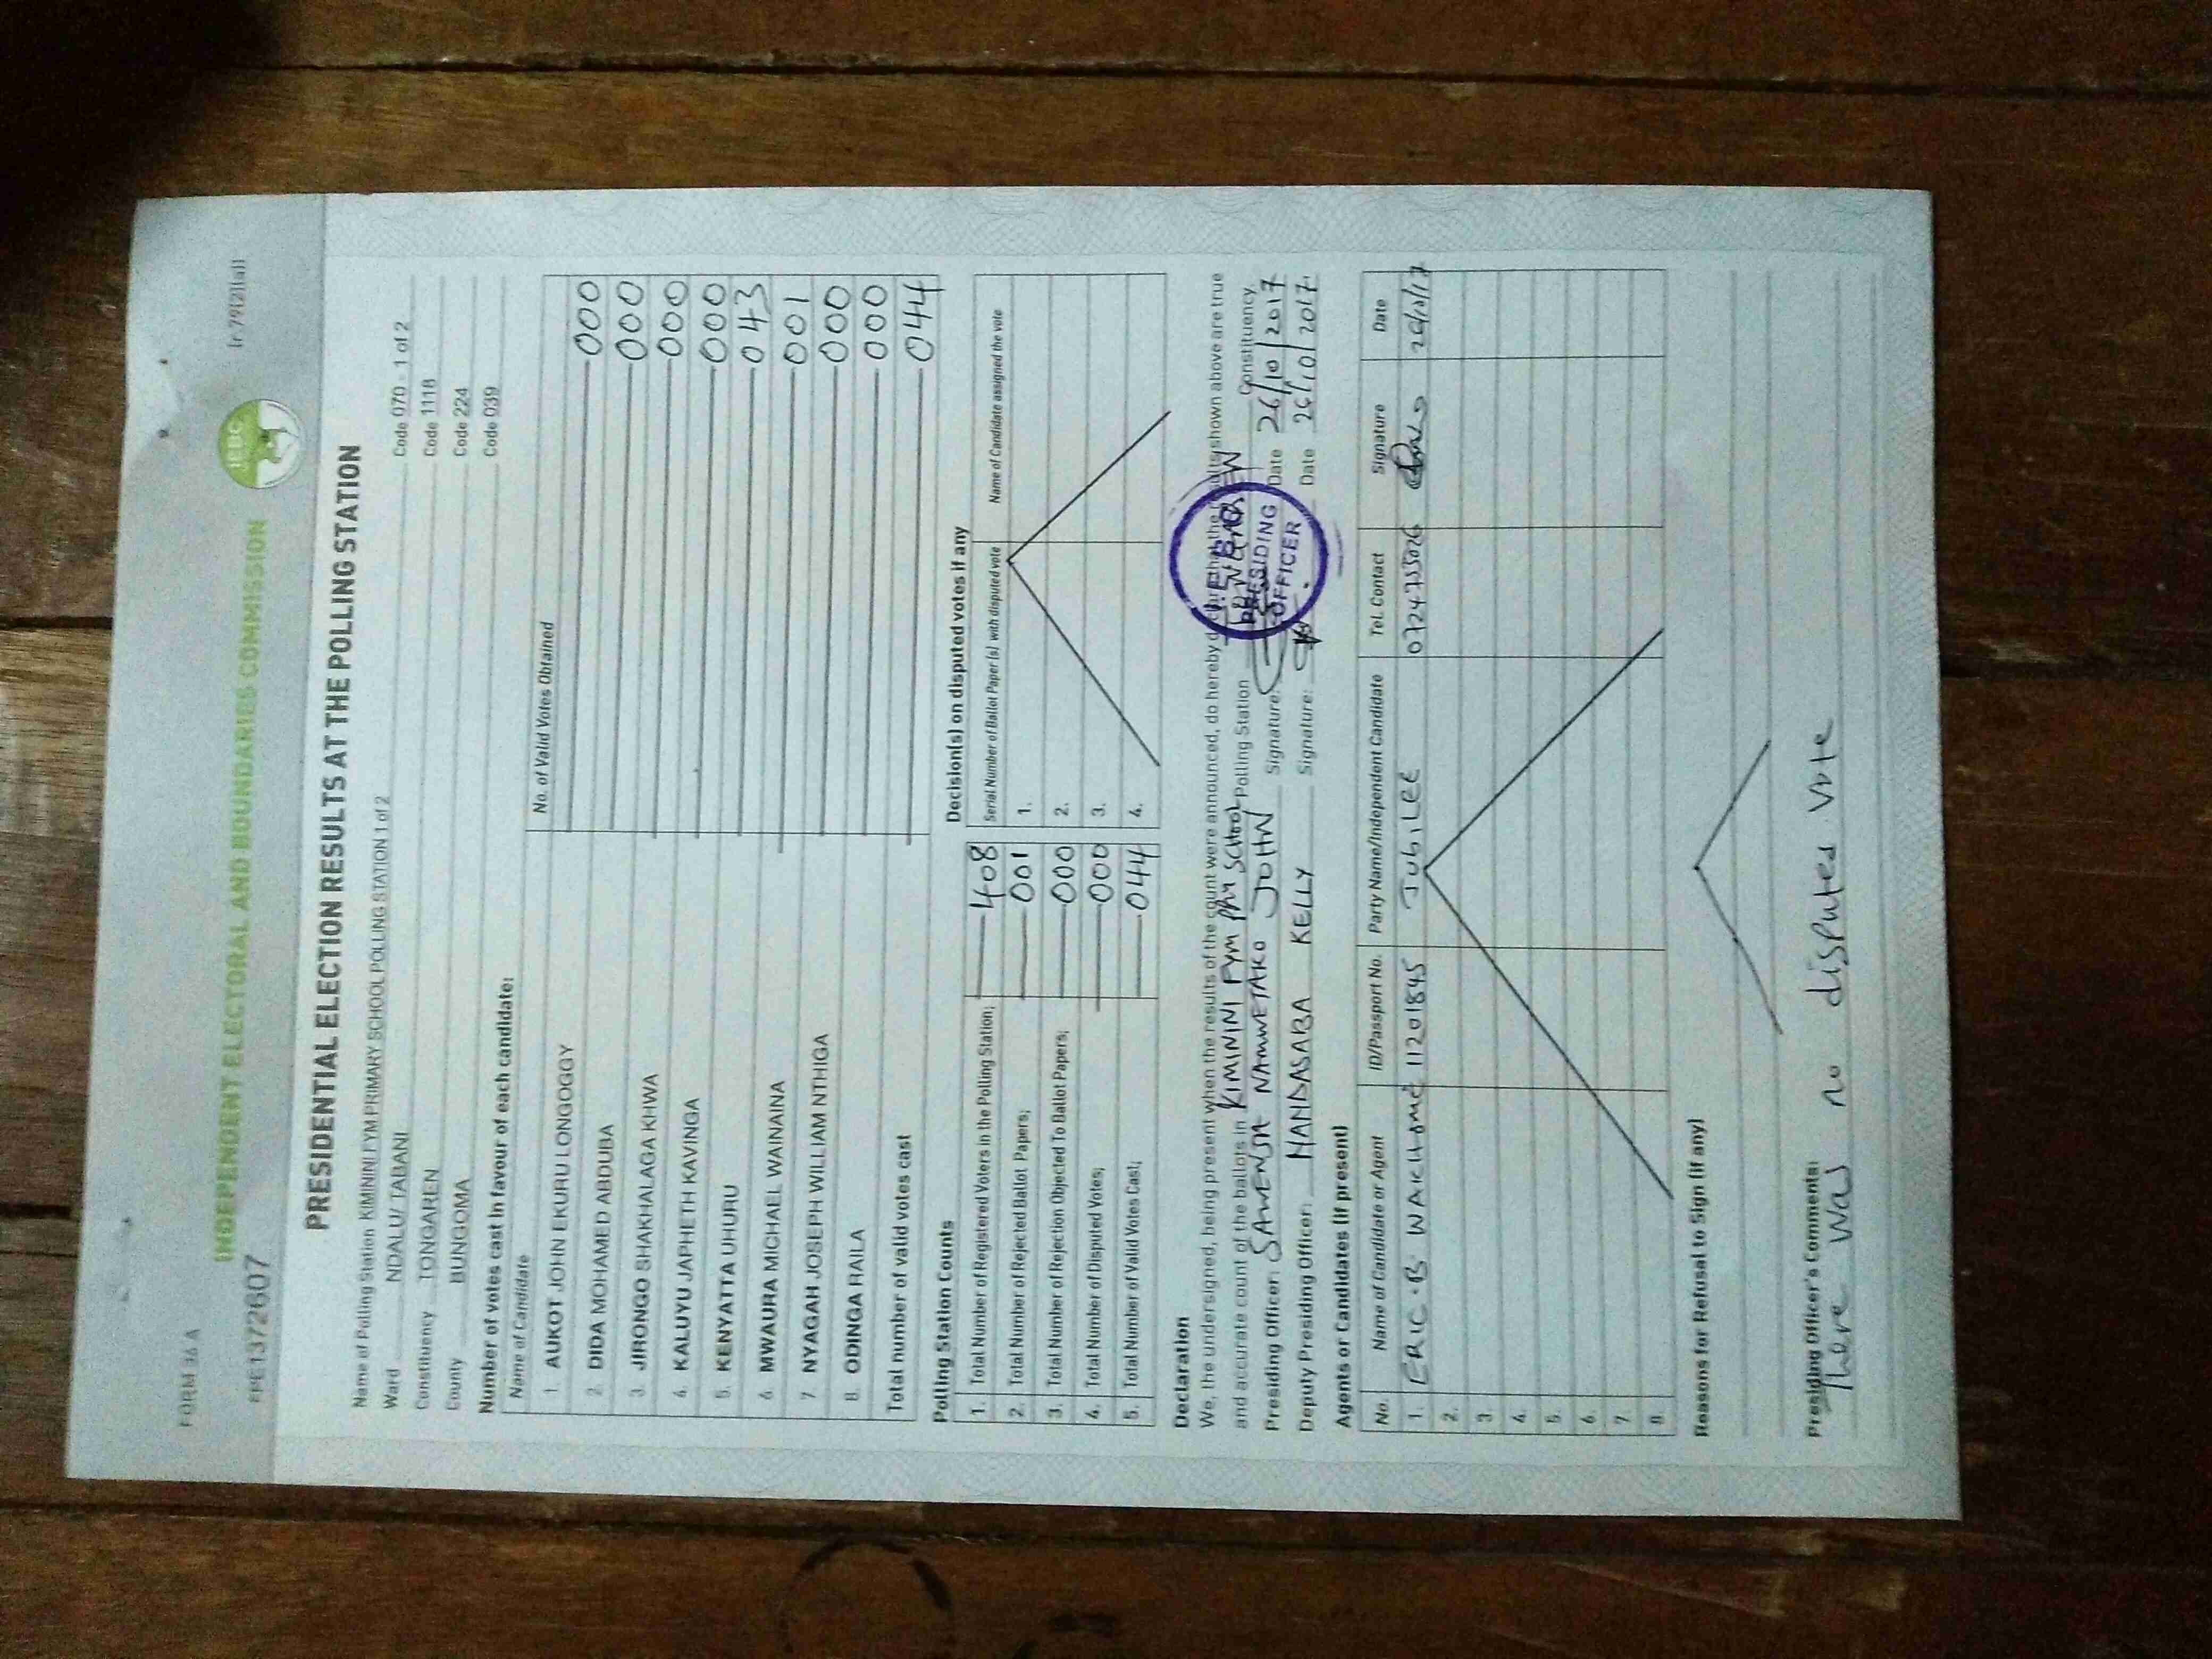 FORM 36 A
(r.79(2)(a))
INDEPENDENT ELECTORAL AND BOUNDARIES COMMISSION
IEBC
PRESIDENTIAL ELECTION RESULTS AT THE POLLING STATION
Name of Polling Station KIMININI FYM PRIMARY SCHOOL POLLING STATION 1 of 2 Code 070 - 1 of 2
Ward NDALU/ TABANI Code 1118
Constituency TONGAREN Code 224
County BUNGOMA Code 039
Number of votes cast in favour of each candidate:
Name of Candidate No. of Valid Votes Obtained
1. AUKOT JOHN EKURU LONGOGGY 000
2. DIDA MOHAMED ABDUBA 000
3. JIRONGO SHAKHALAGA KHWA 000
4. KALUYU JAPHETH KAVINGA 000
5. KENYATTA UHURU 043
6. MWAURA MICHAEL WAINAINA 001
7. NYAGAH JOSEPH WILLIAM NTHIGA 000
8. ODINGA RAILA 000
Total number of valid votes cast 044
Polling Station Counts
1. Total Number of Registered Voters in the Polling Station; 408
2. Total Number of Rejected Ballot Papers; 001
3. Total Number of Rejection Objected To Ballot Papers; 000
4. Total Number of Disputed Votes; 000
5. Total Number of Valid Votes Cast; 044
Decision(s) on disputed votes if any
Serial Number of Ballot Paper (s) with disputed vote Name of Candidate assigned the vote
1.
2.
3.
4.
Declaration
We, the undersigned, being present when the results of the count were announced, do hereby declare that the results shown above are true
and accurate count of the ballots in KIMININI FYM PRY SCHOOL Polling Station Constituency
Presiding Officer: NAMWETAKO JOHN Signature: Date 26/10/2017
Deputy Presiding Officer: NANDASABA KELLY Signature: Date 26/10/2017
PRESIDING
OFFICER
Agents or Candidates (if present)
No. Name of Candidate or Agent ID/Passport No. Party Name/Independent Candidate Tel. Contact Signature Date
1. ERIC .B WAKHOME 11201845 JUBILEE 0724755026 26/10/17
2.
3.
4.
5.
6.
7.
8.
Reasons for Refusal to Sign (if any)
Presiding Officer's Comments:
There was no disputed vote